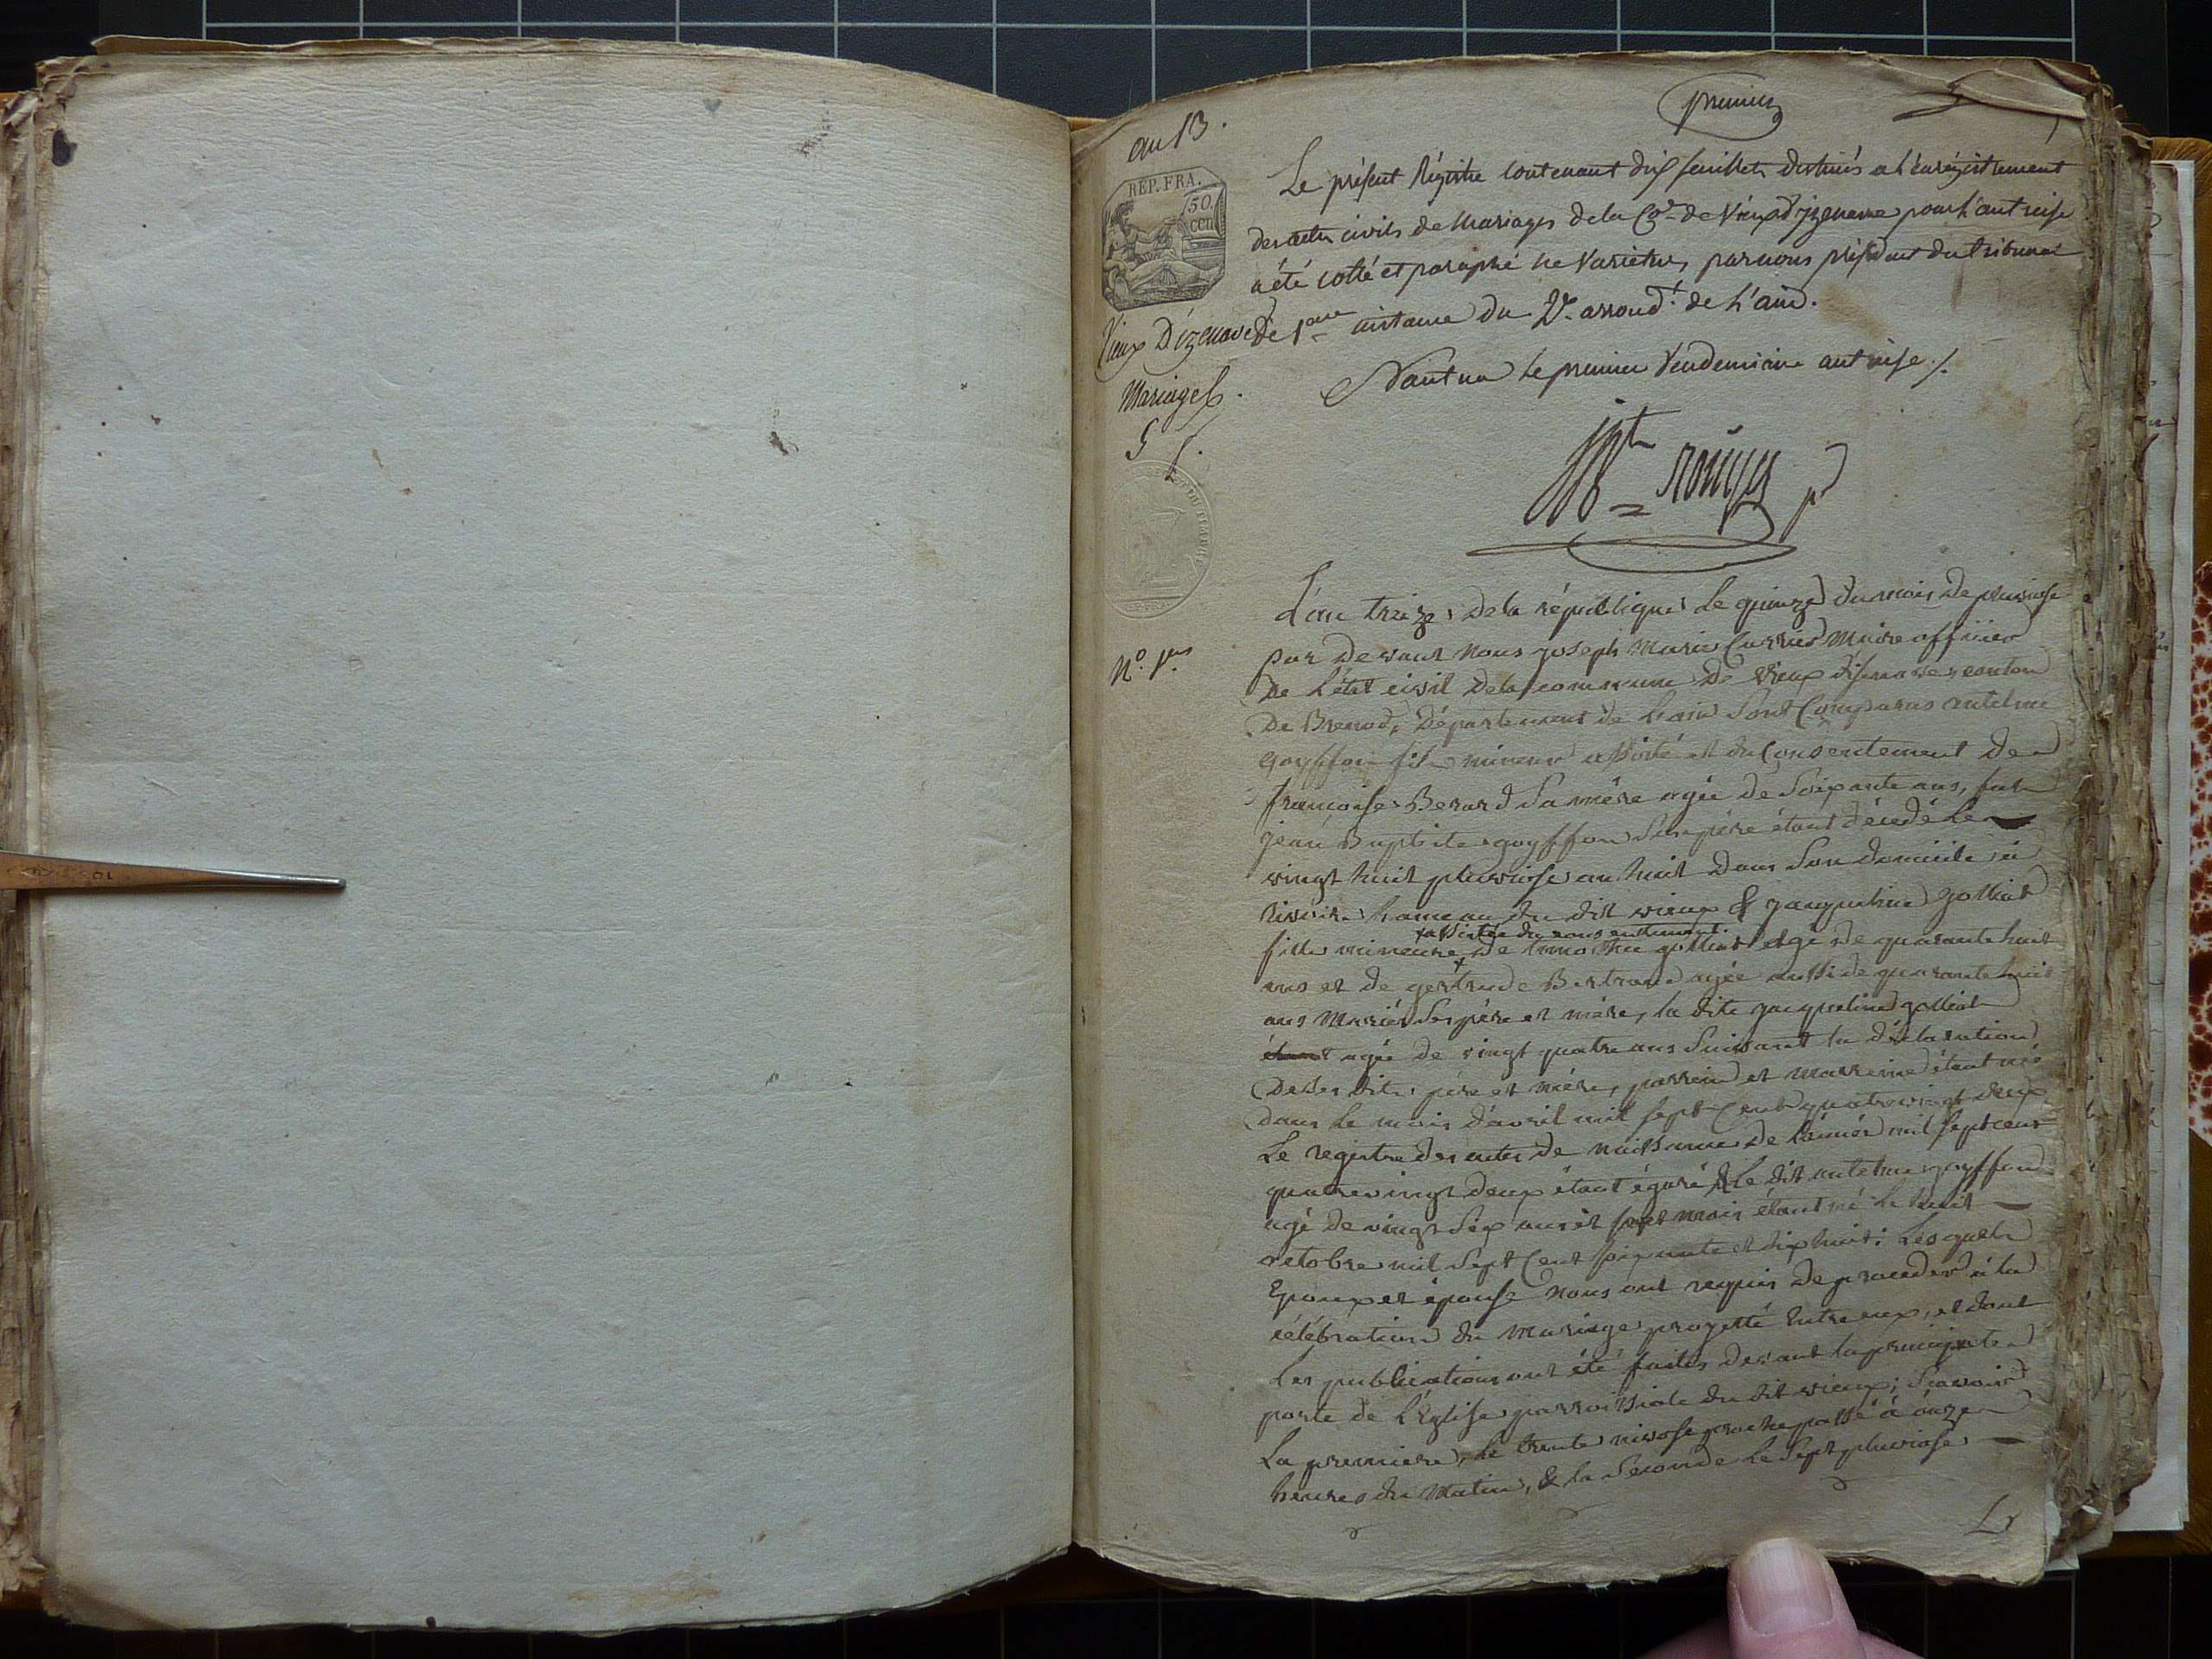 premier
an 13.
REP. FRA.
50.
cen
Vieux Dizenave
Mariages.
Le présent Régistre contenant dix feuillets destinés a l'énrégistrement
des actes civils de Mariages de la Cne de Vieux d'izenave pour l'an treise
a été cotté et paraphé ne Varietur, par nous président du tribunal
de 1ere instance du 2e arrond.t de l'ain.
Nantua le premier Vendemiaire an treise ./.
No. 1er
L'an treize de la république le quinze du mois de pluviose
par devant nous joseph Marie Carrier Maire officier
de l'état civil de la commune de Vieux d'isenave, canton
de Brenod, département de l'ain sont Comparus antelme
goyffon fils mineur assisté et du Consentement de
françoise Berard sa mère agée de soixante ans, fut
jean Baptiste goyffon son père étant décédé le
vingt huit pluviose an huit dans son domicile à
hameau du dit vieux & jacqueline golliat
x assistée du consentement
fille mineure x de golliat agé de quarante huit
ans et de gertrude Bertrand agée aussi de quarante huit
ans Mariés ses père et mère, la dite jacqueline golliat
étant agée de vingt quatre ans suivant la déclaration
de ses dits père et mère, parrein et marreine étant née
dans le mois d'avril mil sept Cent quatrevingt deux
Le registre des actes de naissance de l'année mil sept cent
quatrevingt deux étant égaré & Le dit antelme goyffon
agé de vingt six ans et mois étant né le huit
octobre mil sept Cent soixante et dix huit: Lesquels
Epoux et épouse nous ont requis de proceder à la
célébration du mariage projetté entre eux, et dont
Les publications ont été faites devant la principale
porte de l'Eglise parroissiale du dit vieux; sçavoir
La premiere, le trente nivose proche passé à onze
heures du Matin, & la seconde le sept pluviose